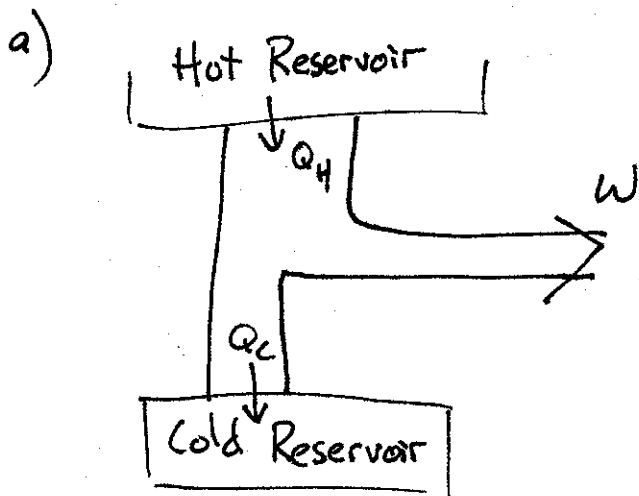 a)
Hot Reservoir
Q_H
W
Q_C
Cold Reservoir